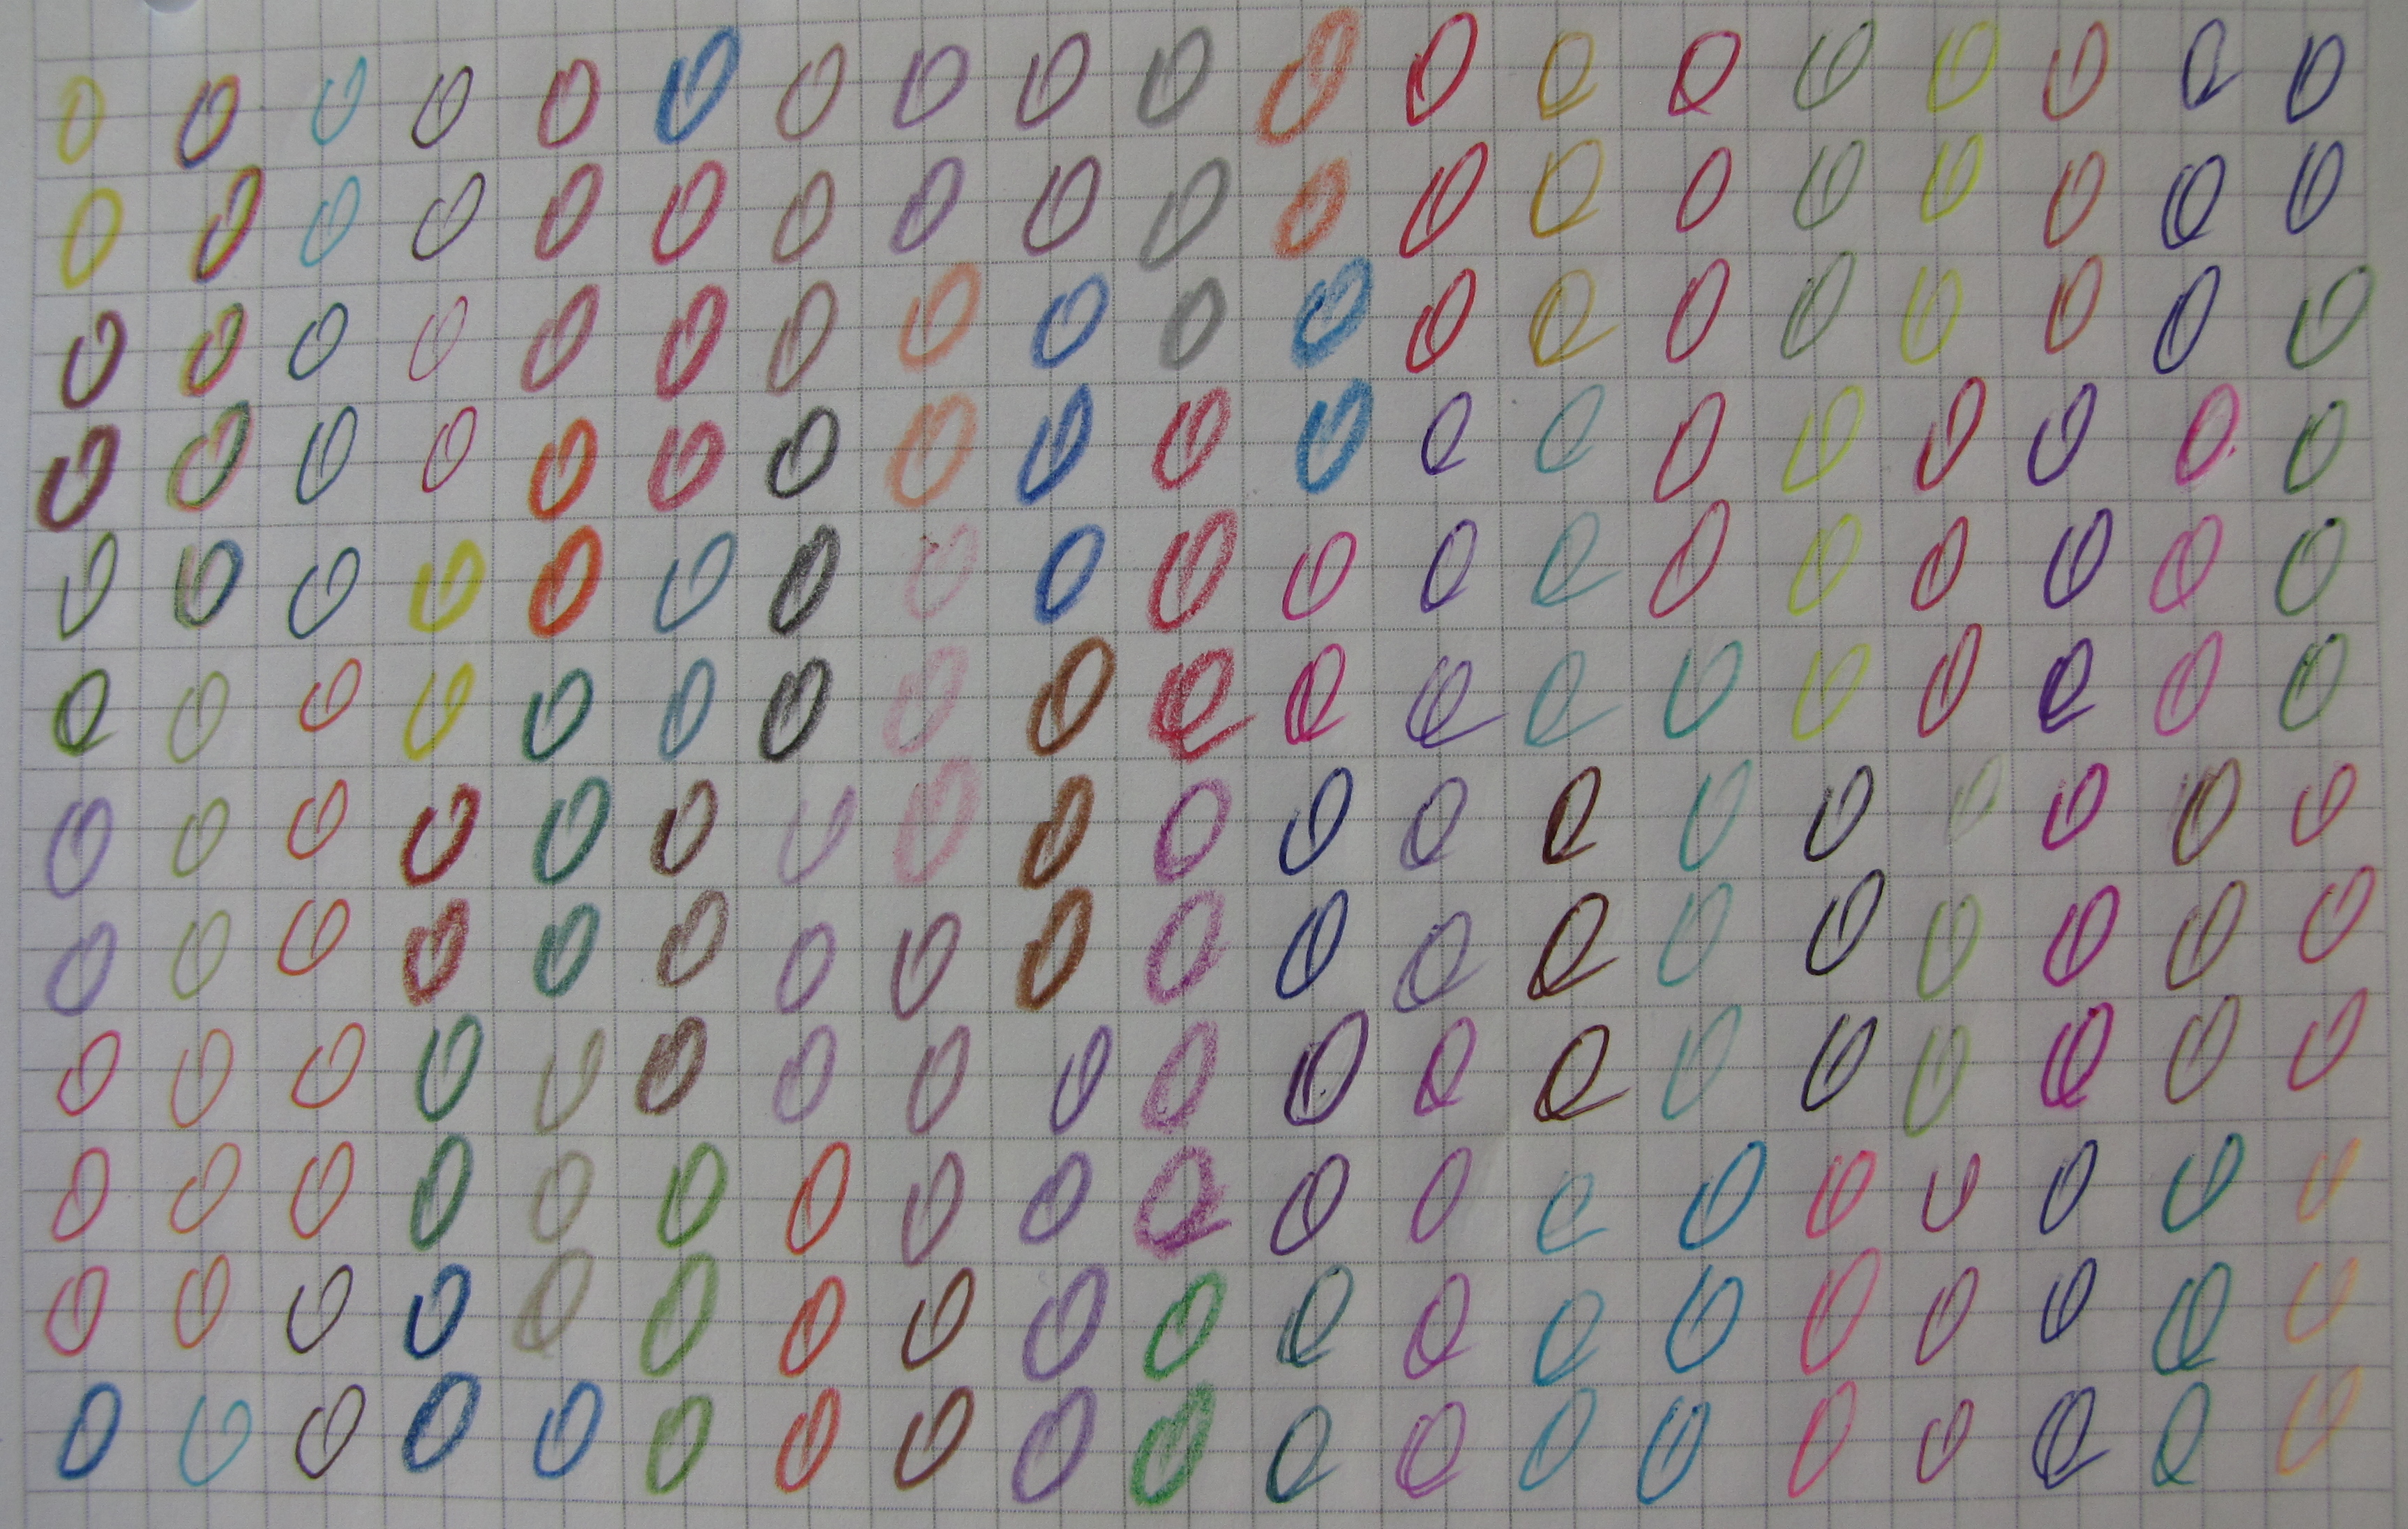 0 0 0 0 0 0 0 0 0 0 0 0 0 0 0 0 0 0 0
0 0 0 0 0 0 0 0 0 0 0 0 0 0 0 0 0 0 0
0 0 0 0 0 0 0 0 0 0 0 0 0 0 0 0 0 0 0
0 0 0 0 0 0 0 0 0 0 0 0 0 0 0 0 0 0 0
0 0 0 0 0 0 0 0 0 0 0 0 0 0 0 0 0 0 0
0 0 0 0 0 0 0 0 0 0 0 0 0 0 0 0 0 0 0
0 0 0 0 0 0 0 0 0 0 0 0 0 0 0 0 0 0 0
0 0 0 0 0 0 0 0 0 0 0 0 0 0 0 0 0 0 0
0 0 0 0 0 0 0 0 0 0 0 0 0 0 0 0 0 0 0
0 0 0 0 0 0 0 0 0 0 0 0 0 0 0 0 0 0 0
0 0 0 0 0 0 0 0 0 0 0 0 0 0 0 0 0 0 0
0 0 0 0 0 0 0 0 0 0 0 0 0 0 0 0 0 0 0